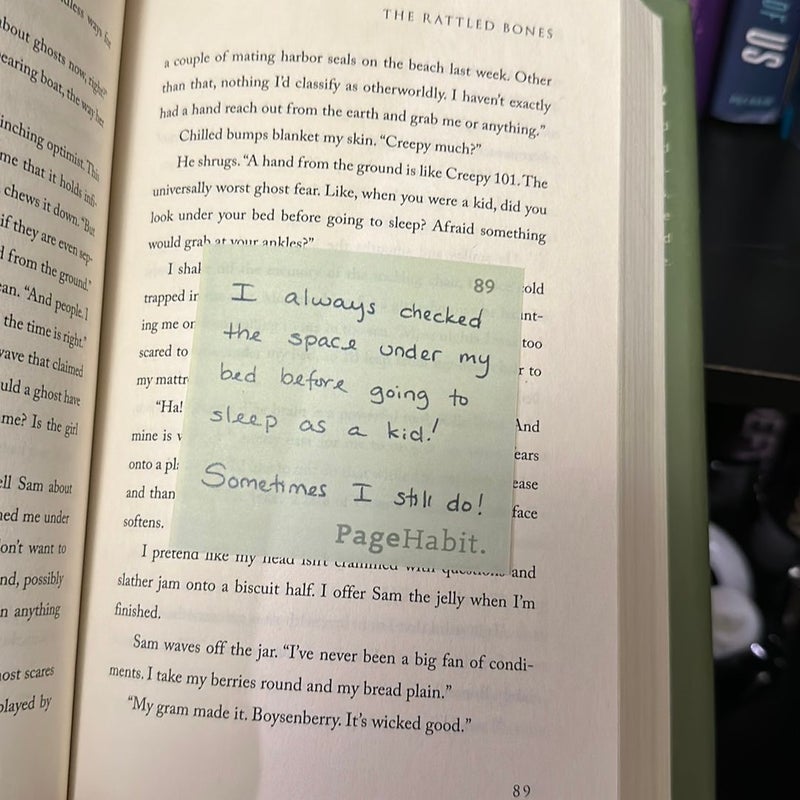 THE RATTLED BONES
a couple of mating harbor seals on the beach last week. Other
than that, nothing I'd classify as otherworldly. I haven't exactly
had a hand reach out from the earth and grab me or anything."
Chilled bumps blanket my skin. "Creepy much?"
He shrugs. "A hand from the ground is like Creepy 101. The
universally worst ghost fear. Like, when you were a kid, did you
look under your bed before going to sleep? Afraid something
would grab at your ankles?"
I shak
old
trapped in
nt-
ing me or
too
scared to
r to
my mattr
"Ha!
And
mine is v
ears
onto a pl
ease
and than
face
softens.
89
I always checked
the space under my
bed before going to
sleep as a kid!
Sometimes I still do!
PageHabit.
I pretend like my head isn't crammed with questions and
slather jam onto a biscuit half. I offer Sam the jelly when I'm
finished.
Sam waves off the jar. "I've never been a big fan of condi-
ments. I take my berries round and my bread plain."
"My gram made it. Boysenberry. It's wicked good."
89
dless ways for
about ghosts now, right?"
earing boat, the way her
inching optimist. This
me that it holds infi-
chews it down. "But
if they are even sep-
d from the ground."
an. "And people I
the time is right."
wave that claimed
uld a ghost have
me? Is the girl
ell Sam about
ned me under
on't want to
nd, possibly
n anything
ost scares
played by
OF US